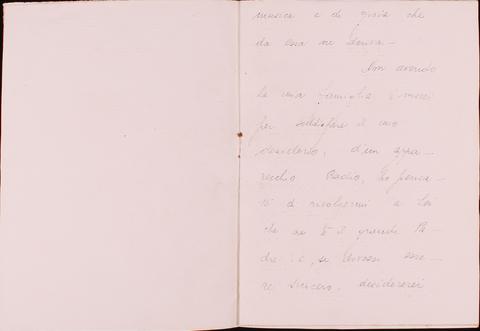 musica e di gioia che
da essa ne deriva –
Non avendo
la mia famiglia i mezzi
per soddisfare il mio
desiderio, d'un appa-
recchio Radio, ho pensa-
to di rivolgermi a Lei
che ne è il grande Pa-
dre e, se devo esse-
re sincero, desidererei